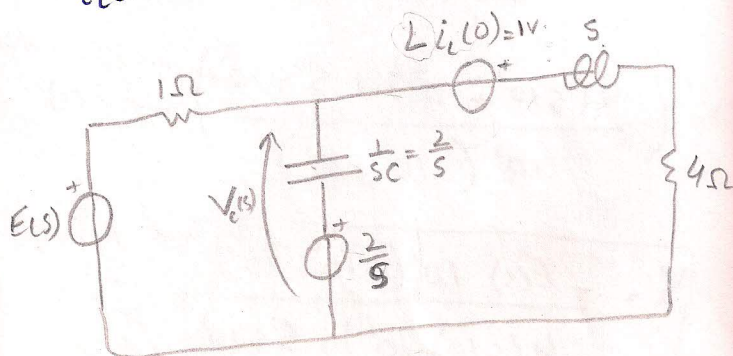 L i_L(0)=1V. S
1Ω
+
1/SC = 2/S
+
E(S)
V_c(s)
+
2/S
4Ω